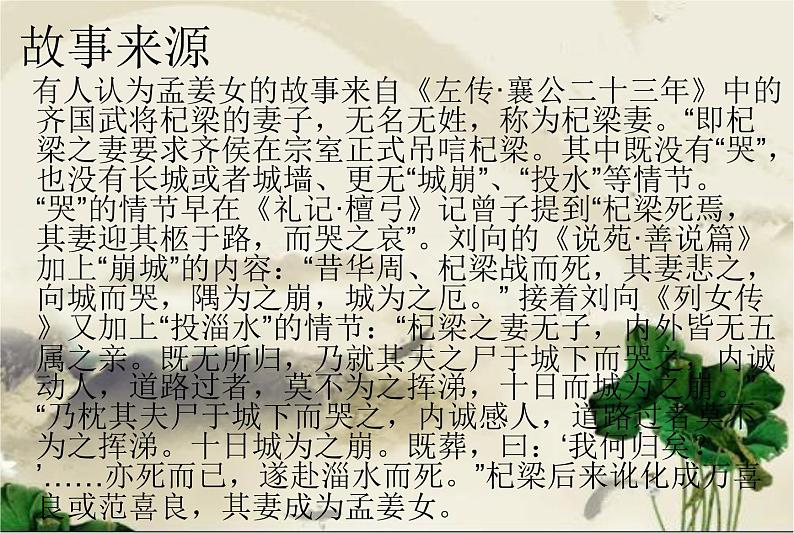 故事来源
有人认为孟姜女的故事来自《左传·襄公二十三年》中的
齐国武将杞梁的妻子，无名无姓，称为杞梁妻。“即杞
梁之妻要求齐侯在宗室正式吊唁杞梁。其中既没有“哭”，
也没有长城或者城墙、更无“城崩”、“投水”等情节。
“哭”的情节早在《礼记·檀弓》记曾子提到“杞梁死焉，
其妻迎其柩于路，而哭之哀”。刘向的《说苑·善说篇》
加上“崩城”的内容：“昔华周、杞梁战而死，其妻悲之，
向城而哭，隅为之崩，城为之厄。” 接着刘向《列女传
》又加上“投淄水”的情节：“杞梁之妻无子，内外皆无五
属之亲。既无所归，乃就其夫之尸于城下而哭之，内诚
动人，道路过者，莫不为之挥涕，十日而城为之崩。”
“乃枕其夫尸于城下而哭之，内诚感人，道路过者莫不
为之挥涕。十日城为之崩。既葬，曰：‘我何归矣？
’……亦死而已，遂赴淄水而死。”杞梁后来讹化成万喜
良或范喜良，其妻成为孟姜女。